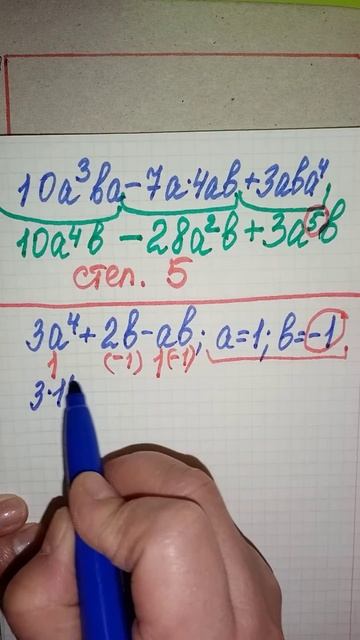 10a³ba-7a·4ab+3aba⁴;
10a⁴b-28a²b+3a⁵b
степ. 5
3a⁴+2b-ab; a=1; b=-1
1 (-1) 1(-1)
3·1